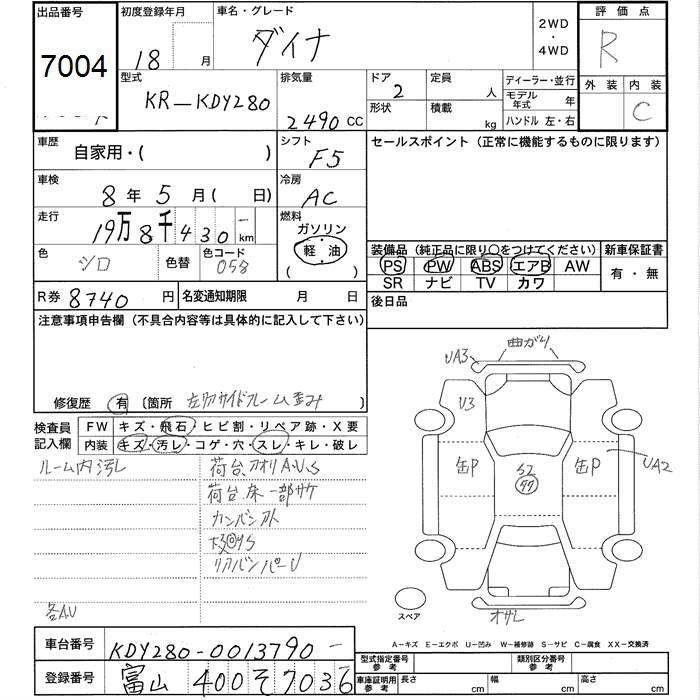 出品番号 初度登録年月 車名・グレード 2WD・4WD 評価点
7004 18 月 ダイナ R
型式 排気量 ドア 定員 ディーラー・並行 外装 内装
KR-KDY280 2490 CC 2 人 モデル年式 年 C
形状 積載 kg ハンドル 左・右
車歴 自家用・( ) シフト F5 セールスポイント (正常に機能するものに限ります)
車検 8年 5月( 日) 冷房 AC
走行 19万8千430 km 燃料 ガソリン 軽油 ( )
色 シロ 色替 色コード 058
装備品 (純正品に限り○をつけてください) 新車保証書
PS PW ABS エアB AW 有・無
SR ナビ TV カワ
R券 8740 円 名変通知期限 月 日 後日品
注意事項申告欄 (不具合内容等は具体的に記入して下さい)
修復歴 有 〔箇所
検査員記入欄 FW キズ・飛石・ヒビ割・リペア跡・X要
内装 キズ・汚レ・コゲ・穴・スレ・キレ・破レ
曲がり
UA3
U3
缶P
缶P
UA2
ルーム内汚レ
荷台アオリA.U.S
荷台床一部サケ
カンバン
リアバンパーU
各A.U
スペア
A-キズ E-エクボ U-凹み W-補修跡 S-サビ C-腐食 XX-交換済
車台番号 KDY280-0013790-
登録番号 富山 400 そ 7036
型式指定番号 参考 類別区分番号 参考
車庫証明用 参考 長さ cm 幅 cm 高さ cm